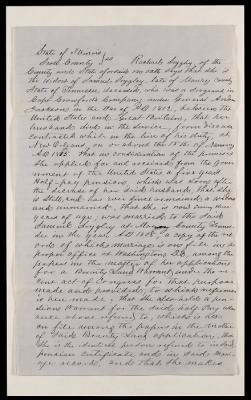 State of Illinois
Scott County } Rachael Loggley of the
County and State aforesaid on oath says that she is
the widow of Samuel Loggley, late of Maury County
State of Tennessee, deceased, who was a Sergeant in
Capt Crawfords Company, under General
Jackson in the War of A.D. 1812, between the
United States and Great Britain, that her
husband died in the service, from disease
contracted while in the line of his duty, at
New Orleans, on or about the of January
A.D. 1815. That in consideration of the premises
she applied for and received from the Govern-
ment of the United States a five years
Half-pay pension, which was long after
the decease of her said husband; that she
is still, and has ever since remained a widow
and unmarried, that she is now
years of age, was married to the said
Samuel Loggley at County Tenne-
see in the year A.D. 180 a copy of the re-
cord of which marriage is on file in the
proper office at Washington City, among the
papers in the matter of her application
for a Bounty Land Warrant, under the re-
cent act of Congress for that purpose
made and provided, to which reference
is here made, that she also holds a pen-
sion Warrant for the said half-pay
above referred to, which is also
on file among the papers in the matter
of said Bounty Land application, that
she is the identical person referred to in said
pension certificate and in said marri-
age record, and that she makes